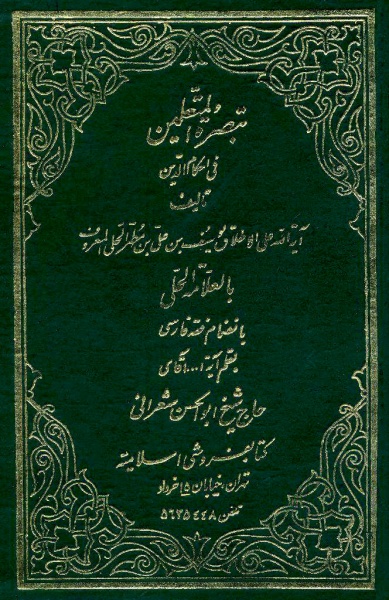 تبصرة المتعلمین
فی احکام الدین
تالیف
آیة الله علی الاطلاق یوسف بن علی بن مطهر الحلی المعروف
بالعلامة الحلی
بانضمام فقه فارسی
بقلم آیة ا... آقای
حاج شیخ ابوالحسن شعرانی
کتابفروشی اسلامیه
تهران، خیابان ۱۵ خرداد
تلفن ۵۶۳۵۴۴۸